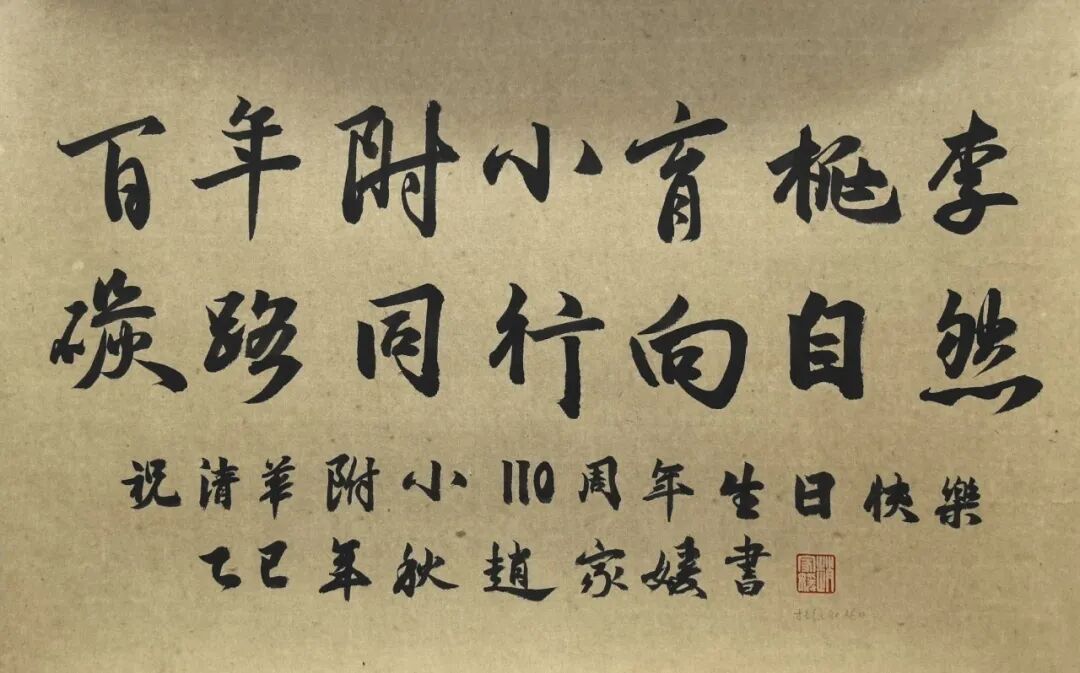 百年附小育桃李
碳路同行向自然
祝清華附小110周年生日快樂
乙巳年秋趙家書